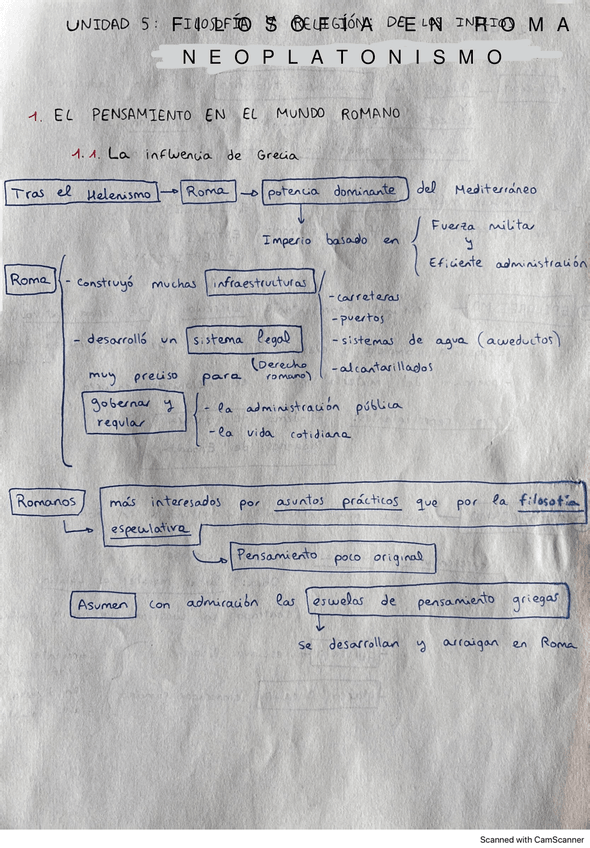 UNIDAD 5: FILOSOFÍA Y RELIGIÓN DE LOS INICIOS
FILOSOFIA EN ROMA
NEOPLATONISMO
1. EL PENSAMIENTO EN EL MUNDO ROMANO
1.1. La influencia de Grecia
Tras el Helenismo → Roma → potencia dominante del Mediterráneo
Imperio basado en
Fuerza militar
y
Eficiente administración
Roma
- construyó muchas infraestructuras
- carreteras
- puertos
- sistemas de agua (acueductos)
- alcantarillados
- desarrolló un sistema legal
(Derecho romano)
muy preciso para
gobernar y
regular
- la administración pública
- la vida cotidiana
Romanos
más interesados por asuntos prácticos que por la filosofía
especulativa
Pensamiento poco original
Asumen con admiración las escuelas de pensamiento griegas
se desarrollan y arraigan en Roma
Scanned with CamScanner